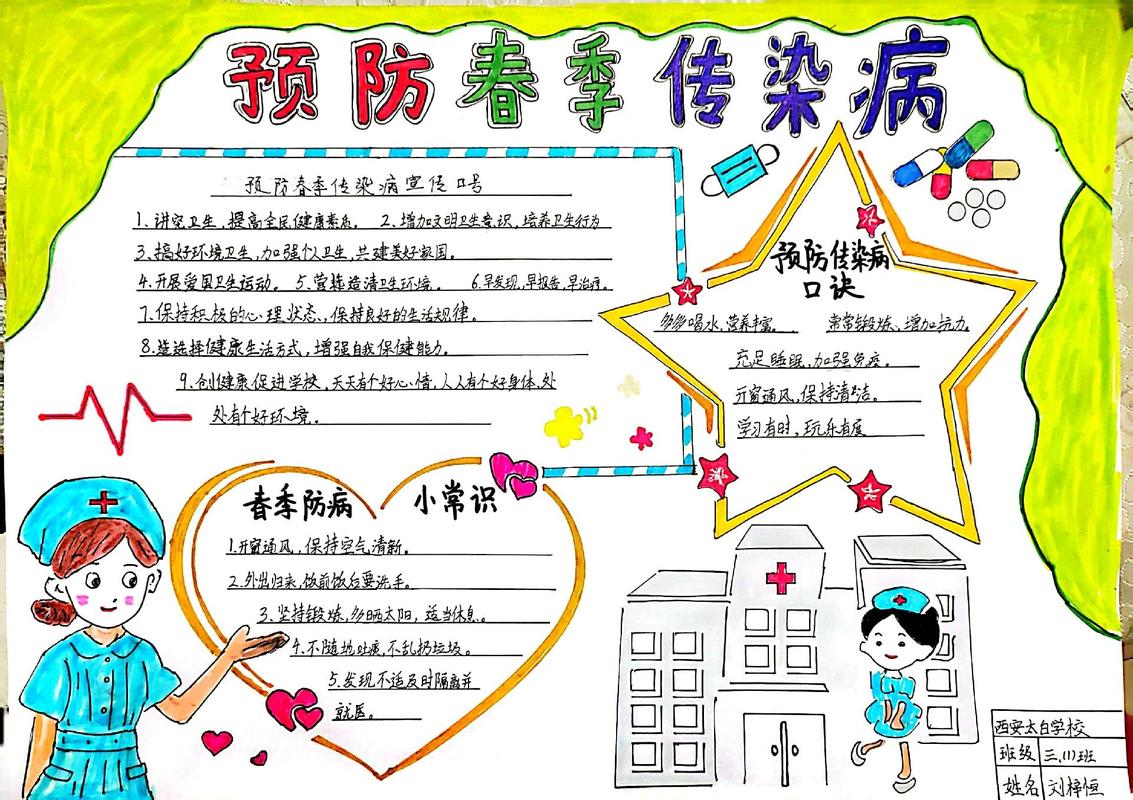 预防春季传染病
预防春季传染病宣传口号
1、讲究卫生，提高全民健康素质。 2、增加文明卫生意识，培养卫生行为
3、搞好环境卫生，加强个人卫生，共建美好家园。
4、开展爱国卫生运动。 5、营造清卫生环境。 6、早发现，早报告，早治疗。
7、保持积极的心理状态，保持良好的生活规律。
8、选择健康生活方式，增强自我保健能力。
9、创健康促进学校，天天有个好心情，人人有个好身体，处
处有个好环境。
预防传染病
口诀
多多喝水，营养丰富。 常常锻炼、增加抗力。
充足睡眠，加强免疫。
开窗通风，保持清洁。
学习有时，玩乐有度
春季防病 小常识
1、开窗通风，保持空气清新。
2、外出归来，饭前饭后要洗手。
3、坚持锻炼，多晒太阳，适当休息。
4、不随地吐痰，不乱扔垃圾。
5、发现不适及时隔离并
就医。
西安太白学校
班级 三、(1)班
姓名 刘梓恒